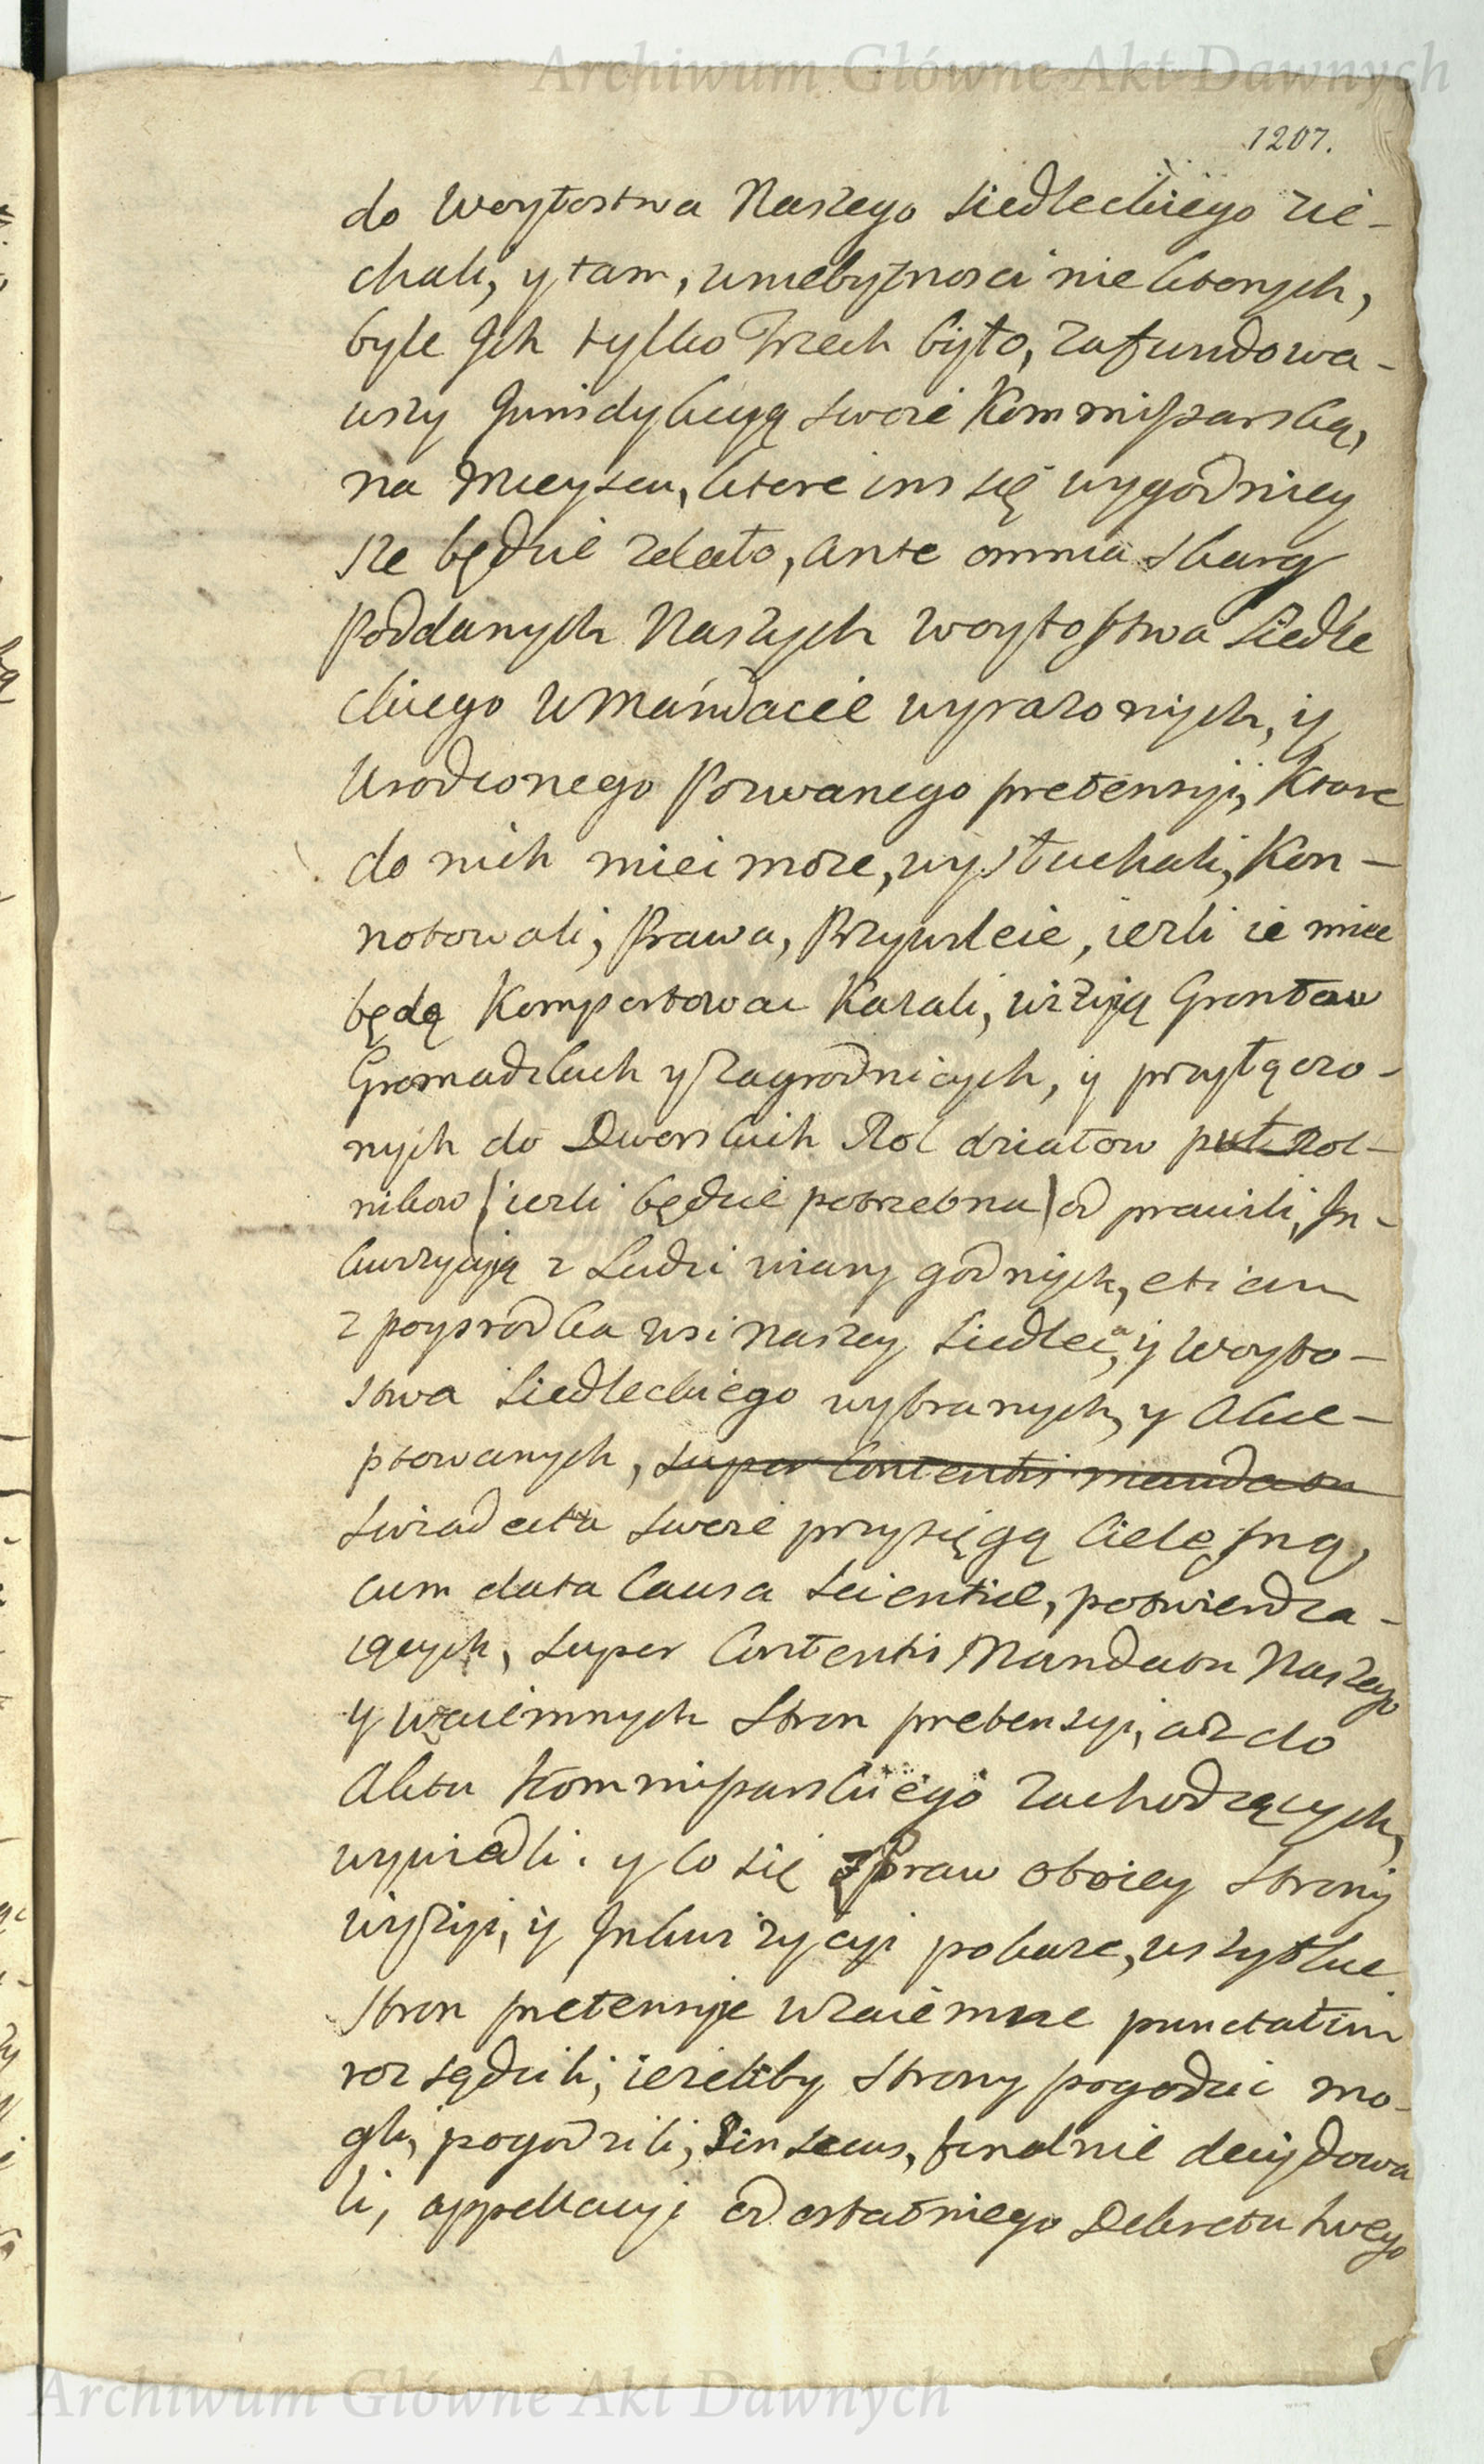 Archiwum Główne Akt Dawnych
1207.
do Woytostwa Naszego Siedleckiego zie-
chali, y tam, w niebytnosci niektorych,
byle Ich tylko Trzech było, zafundowa-
wszy Jurisdykcyą swoie Kommissarską,
na Mieyscu, ktore im się wygodniey
sze będzie zdało, ante omnia skarg
Poddanych Naszych Woytostwa Siedle
ckiego w Mandacie wyrazonych, y
Urodzonego Pozwanego pretensyi, Ktore
do nich miei moze, wysłuchali, Kon-
notowali, Prawa, Przywileie, iezli ie miec
będą Komportowac Kazali, wizyją Gruntow
Gromadzkich y Zagrodniczych, y przyłączo-
nych do Dworskich Rol działow puł Rol-
nikow (iezli będzie potrzebna) odprawili, In-
kwizycyią z Ludzi wiary godnych, etiam
z posrodka wsi Naszey Siedlca, y Woyto-
stwa Siedleckiego wybranych, y Akce-
ptowanych, super Contentis mandatu
swiadectwa swoie przysięgą Cielesną,
cum data Causa Scientiae, potwierdza-
iących, super Contentis Mandatu Naszego
y wzaiemnych Stron pretensyi, az do
Aktu Kommissarskiego zachodzących,
wywiedli. y co się z Praw oboiey Strony
wizyi, y Inkwizycyi pokaze, wszystkie
stron pretensyje wzaiemne punctatim
rozsądzili, iezeliby Strony pogodzic mo-
gli, pogodzili, Sin secus, finalnie decydowa
li, appellacyi od ostatniego Dekretu swego
Archiwum Główne Akt Dawnych